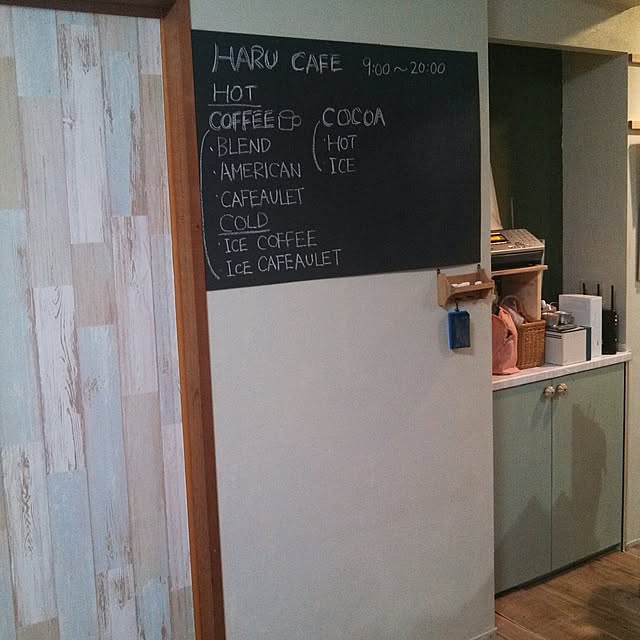 HARU CAFE 9:00~20:00
HOT
COFFEE
・BLEND
・AMERICAN
・CAFEAULET
COLD
・ICE COFFEE
・ICE CAFEAULET
COCOA
・HOT
・ICE